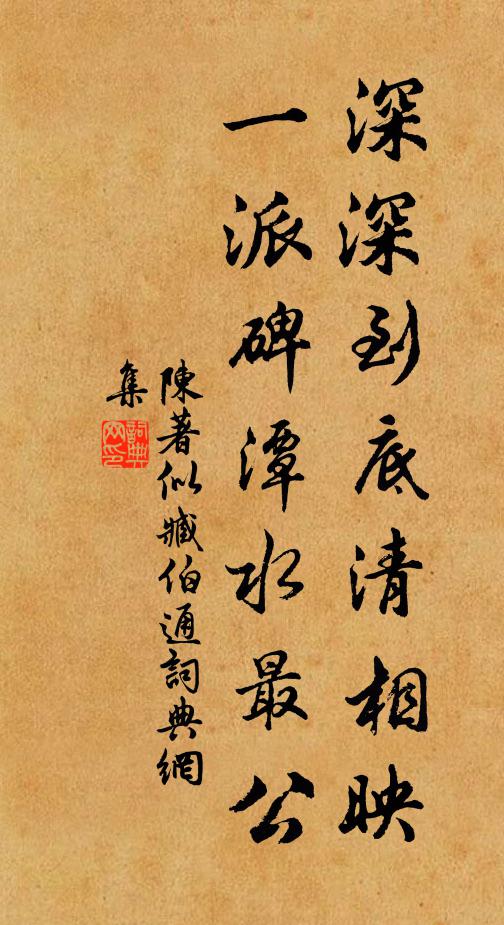 深深到底清相映
一派碑潭水最公
陳著似臧伯通詞典網
集
詞典网印